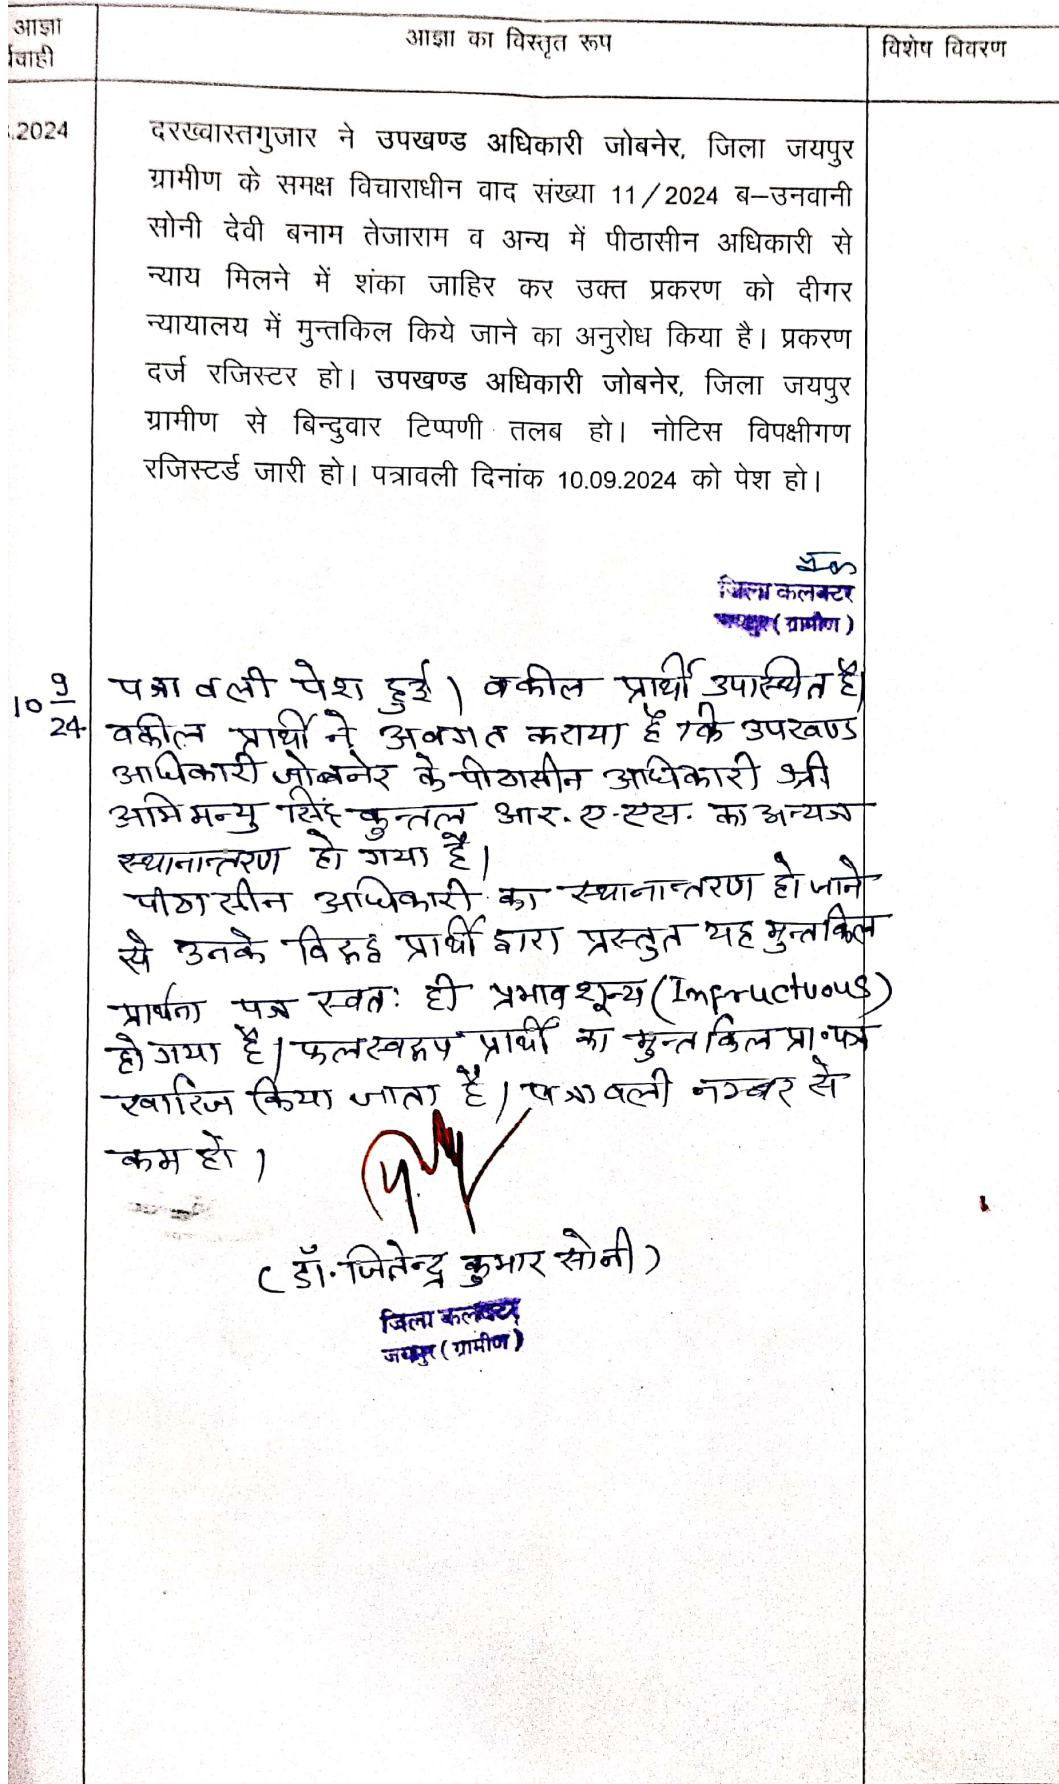 आज्ञा
र्यवाही
आज्ञा का विस्तृत रूप
विशेष विवरण
.2024
दरख्वास्तगुजार ने उपखण्ड अधिकारी जोबनेर, जिला जयपुर
ग्रामीण के समक्ष विचाराधीन वाद संख्या 11/2024 ब–उनवानी
सोनी देवी बनाम तेजाराम व अन्य में पीठासीन अधिकारी से
न्याय मिलने में शंका जाहिर कर उक्त प्रकरण को दीगर
न्यायालय में मुन्तकिल किये जाने का अनुरोध किया है। प्रकरण
दर्ज रजिस्टर हो। उपखण्ड अधिकारी जोबनेर, जिला जयपुर
ग्रामीण से बिन्दुवार टिप्पणी तलब हो। नोटिस विपक्षीगण
रजिस्टर्ड जारी हो। पत्रावली दिनांक 10.09.2024 को पेश हो।
जिला कलक्टर
जयपुर (ग्रामीण)
10 9/24
पत्रावली पेश हुई। वकील प्रार्थी उपस्थित है।
वकील प्रार्थी ने अवगत कराया है कि उपखण्ड
अधिकारी जोबनेर के पीठासीन अधिकारी श्री
अभिमन्यु सिंह कुन्तल आर.ए.एस. का अन्यत्र
स्थानान्तरण हो गया है।
पीठासीन अधिकारी का स्थानान्तरण हो जाने
से उनके विरुद्ध प्रार्थी द्वारा प्रस्तुत यह मुन्तकिल
प्रार्थना पत्र स्वतः ही प्रभाव शून्य (Infructuous)
हो गया है। फलस्वरूप प्रार्थी का मुन्तकिल प्रा.पत्र
खारिज किया जाता है। पत्रावली नम्बर से
कम हो।
(डॉ. जितेन्द्र कुमार सोनी)
जिला कलक्टर
जयपुर (ग्रामीण)